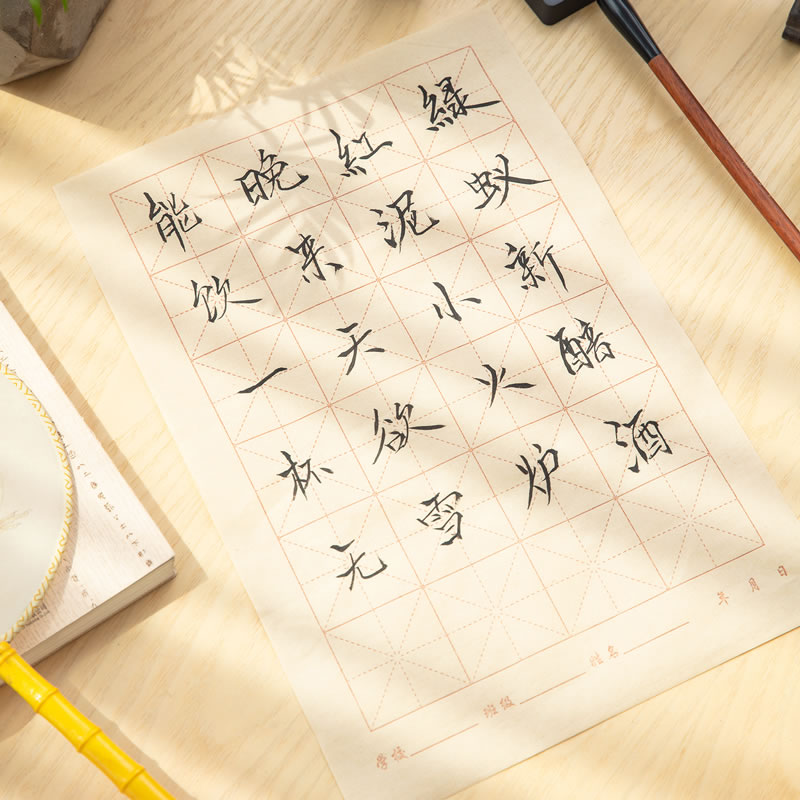 緑蚁新醅酒
紅泥小火炉
晚来天欲雪
能饮一杯无
学校
班级
姓名
年 月 日